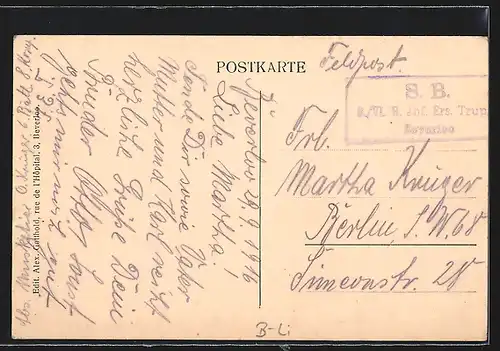 POSTKARTE
Feldpost.
S. B.
Inf. Ers. Trup
Beverloo
Frl.
Martha Krüger
Berlin S.W. 68
Simeonstr. 28
Beverloo 29.9.1916
Liebe Martha!
Sende Dir sowie Vater
Mutter und Karl recht
herzliche Grüße Dein
Bruder Otto sonst
gehts mir noch gut
Edit. Alex. Gotthold, rue de l'Hôpital, 3, Beverloo.
B-Li